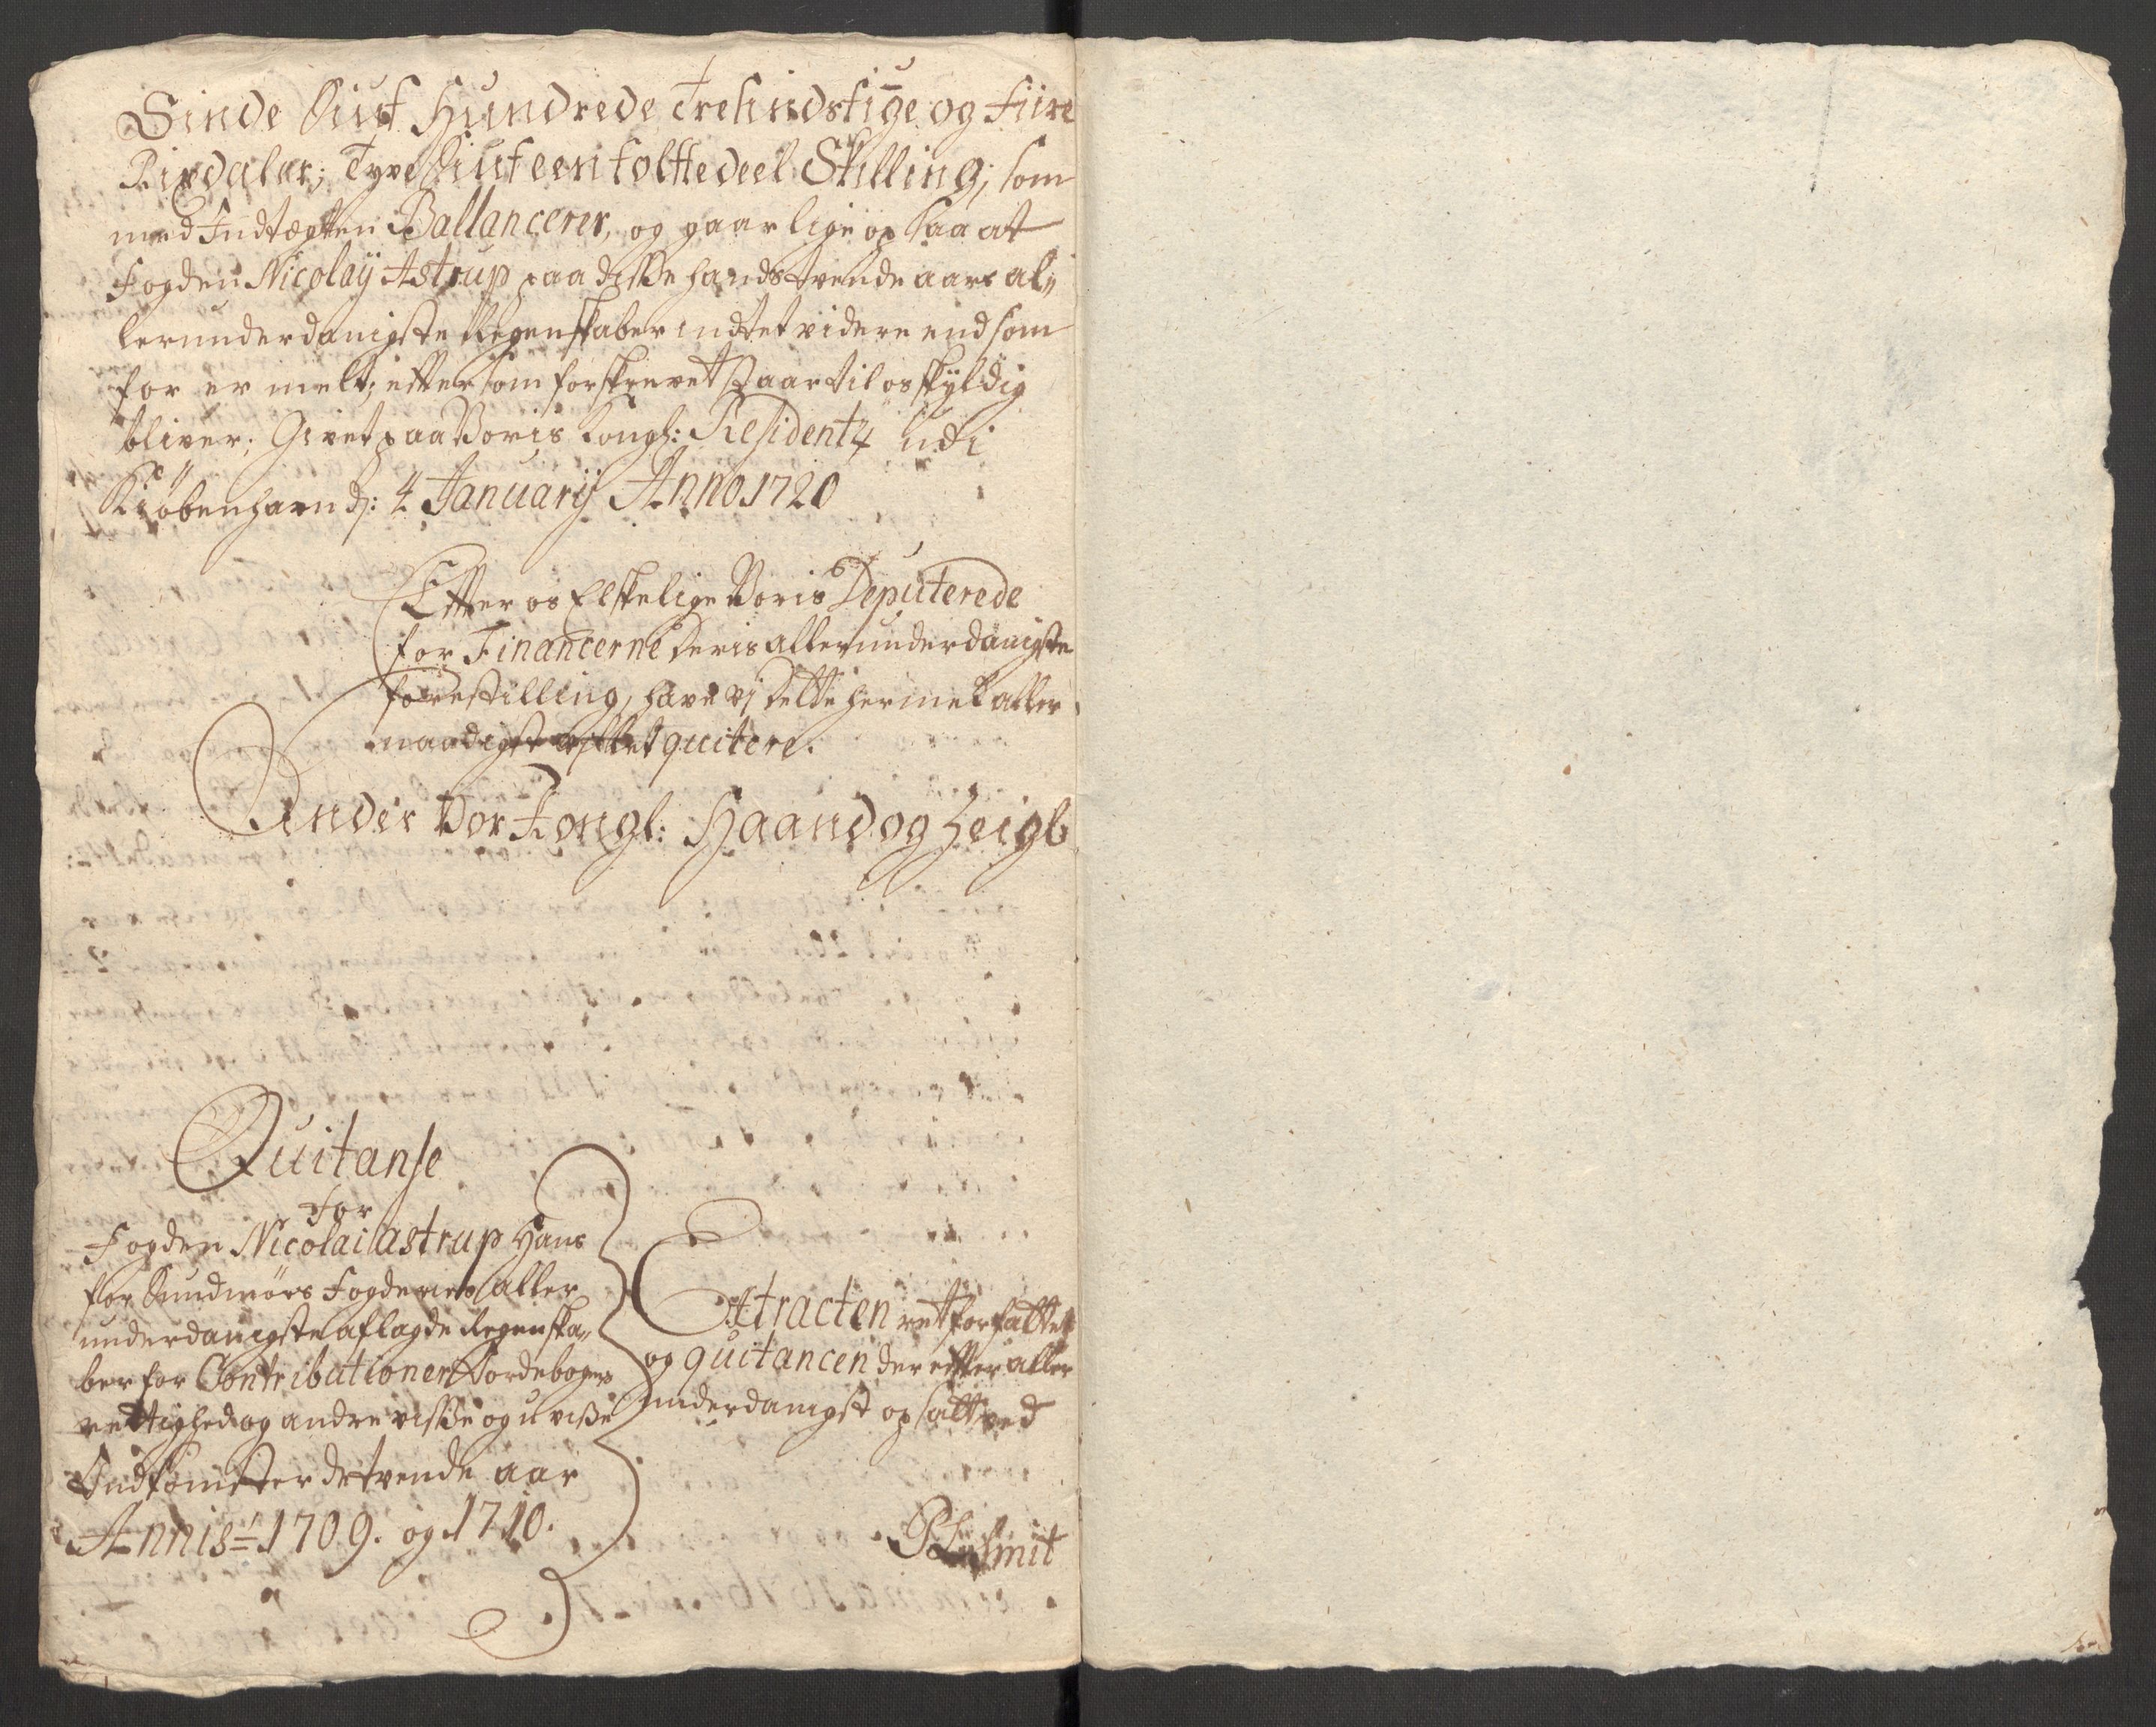 Sinde Siuf Hundrede Tresindstige og Fiire
Rixdaler; Tyve Siuf een tolfftedeel Skilling; som
med Indtegten Ballancerer, og gaar lige op saa at
Fogden Nicolaÿ Astrup paa disse hands tvende aars al„
lerunderdanigste Regenskaber indtet videre end som
for er melt, efftersom forskrevet staar til os skyldig
bliver; Givet paa Voris Kongl: Residentz udi
Kiøbenhavn d: 4 Januarij Anno 1720
Effter os Elskelige Voris Deputerede
for Financerne deris allerunderdanigste
forestilling, have vj dette hermed aller
naadigst villet quitere.
Under Vor Kongl: Haand og Zeigl
Quitanse
for
Fogden Nicolai Astrup Hans
for Sundmørs Fogderies aller
underdanigste aflagde Regenska„
ber for Contributioner Jordebogens
rettighed og andre visse og uvisse
Indkomster de tvende aar
Annis 1709. og 1710.
Extracten ret forfattet
og quitancen der effter aller
underdanigst opsatt ved
Schmit